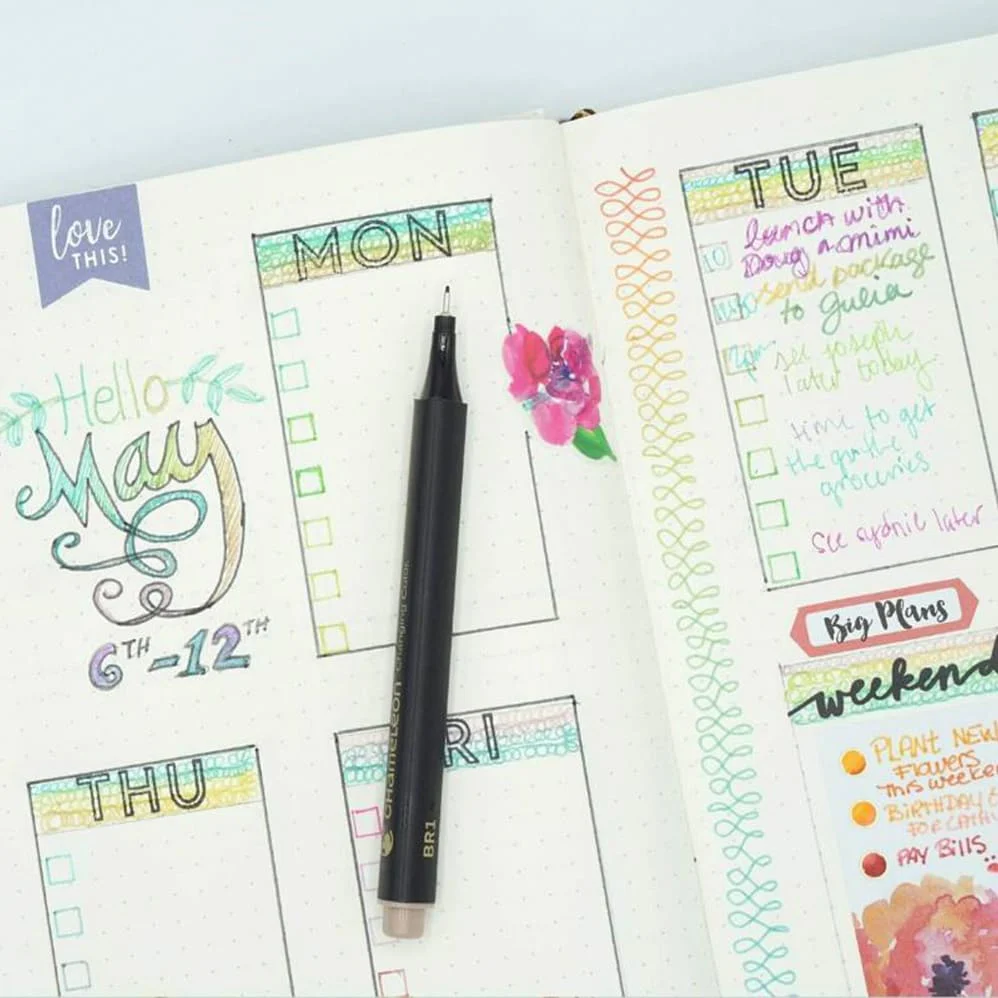 love
THIS!
Hello
May
6TH-12TH
MON
THU
RI
CHAMELEON Changing Color
BR1
TUE
lunch with
Doug n mimi
send package
to Gulia
2pm see joseph
later today
time to get
groceries
see sydnie later
Big Plans
weekend
PLANT NEW
Flowers
THIS weeken
BIRTHDAY
FOR CATHY
PAY BILLS